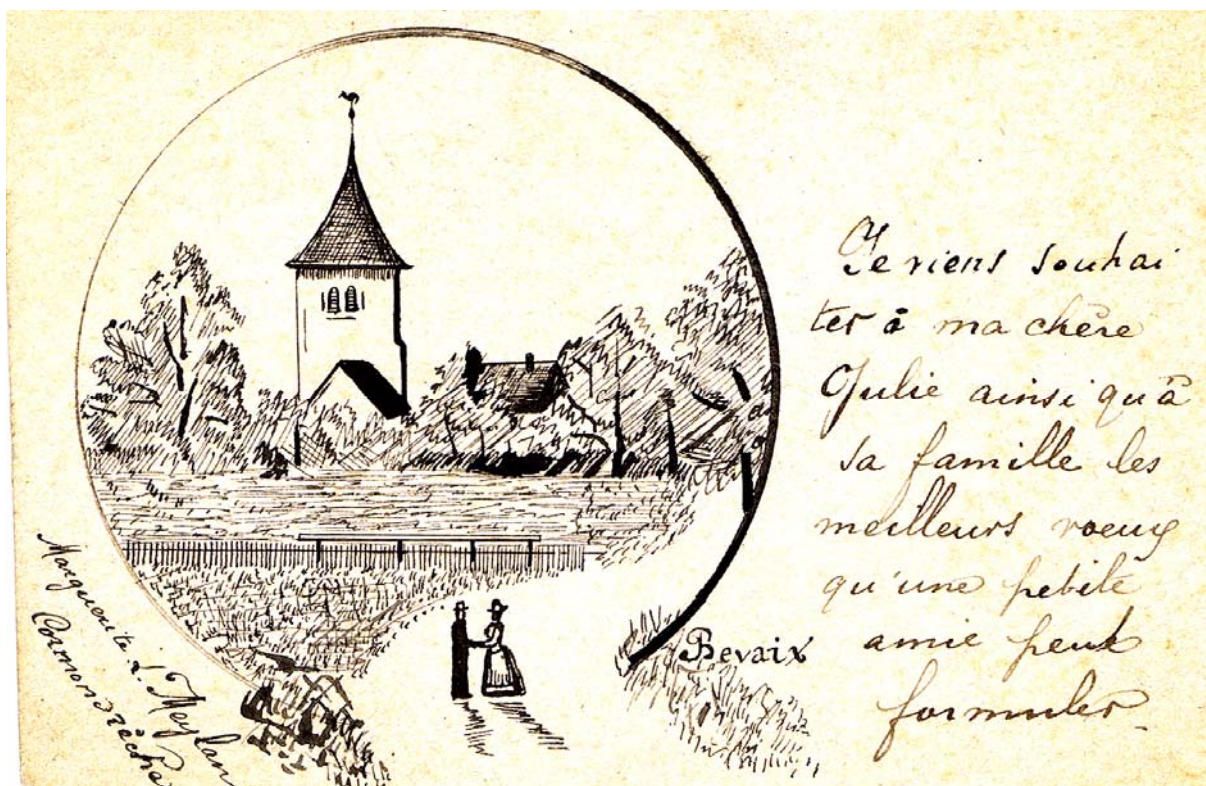 Je viens souhai
ter à ma chère
Julie ainsi qu'à
sa famille les
meilleurs voeux
qu'une petite
amie peut
formuler.
Bevaix
Marguerite L. Meylan
Cormondrèche